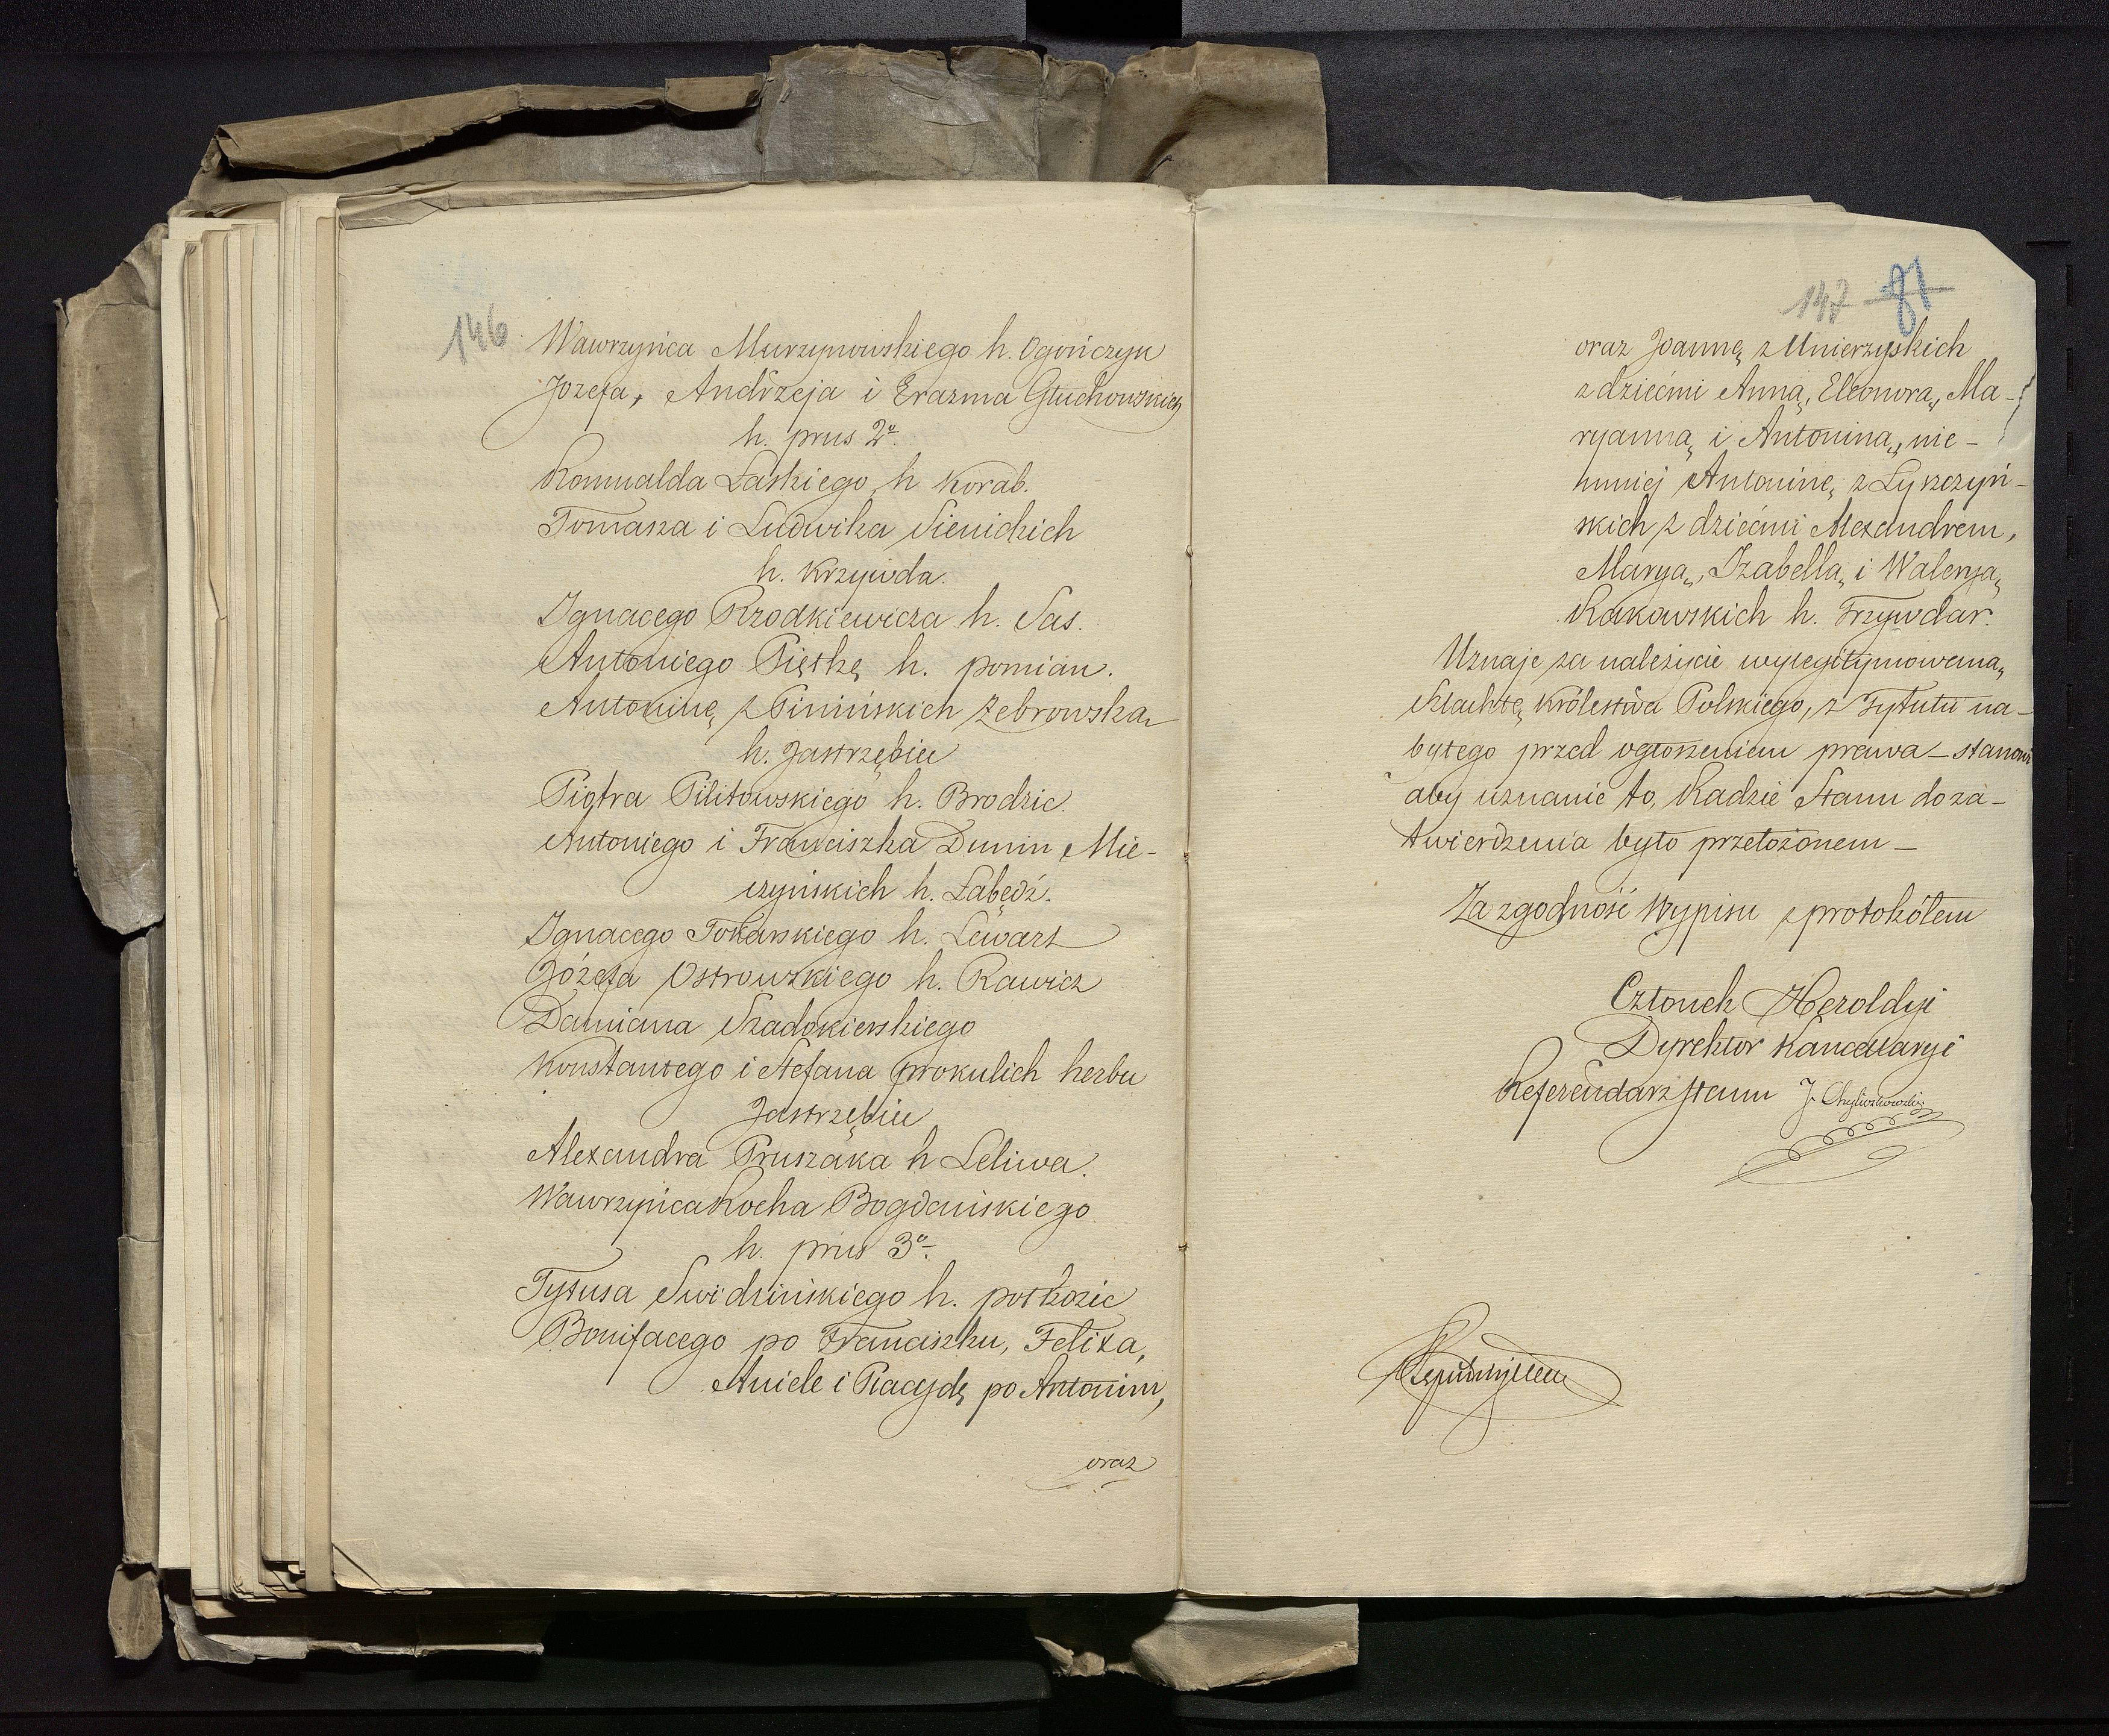 146
Wawrzyńca Murzynowskiego h. Ogończyk
Józefa, Andrzeja i Erazma Głuchowskich
h. prus 2º.
Romualda Łaskiego h Korab.
Tomasza i Ludwika Sienickich
h. Krzywda.
Ignacego Rzodkiewicza h. Sas.
Antoniego Piętkę h. pomian.
Antoninę z Pinińskich Żebrowską
h. Jastrzębiec
Piotra Pilitowskiego h. Brodzic.
Antoniego i Franciszka Dunin Mie-
czyńskich h. Łabędź.
Ignacego Tokarskiego h. Lewart
Józefa Ostrowskiego h. Rawicz
Damiana Szadokierskiego
Konstantego i Stefana Prokulich herbu
Jastrzębiec
Alexandra Pruszaka h Leliwa.
Wawrzyńca Rocha Bogdańskiego
h. prus 3º.
Tytusa Swidzińskiego h. półkozic
Bonifacego po Franciszku, Felixa,
Anielę i Placydę po Antonim,
oraz
147 81
oraz Joannę z Unierzyskich
z dziećmi Anną, Eleonorą, Ma-
ryanną i Antoniną, nie-
mniej Antoninę z Łyszczyń-
skich z dziećmi Alexandrem,
Maryą, Izabellą i Waleryą
Rakowskich h. Trzywdar.
Uznaje za należycie wylegitymowaną
Szlachtę Królestwa Polskiego, z Tytułu na-
bytego przed ogłoszeniem prawa – stanowi
aby uznanie to, Radzie Stanu do za-
twierdzenia było przełożonem –
Za zgodność Wypisu z protokółem
Członek Heroldyi
Dyrektor Kancellaryi
Referendarz Stanu J. Chyliczkowski